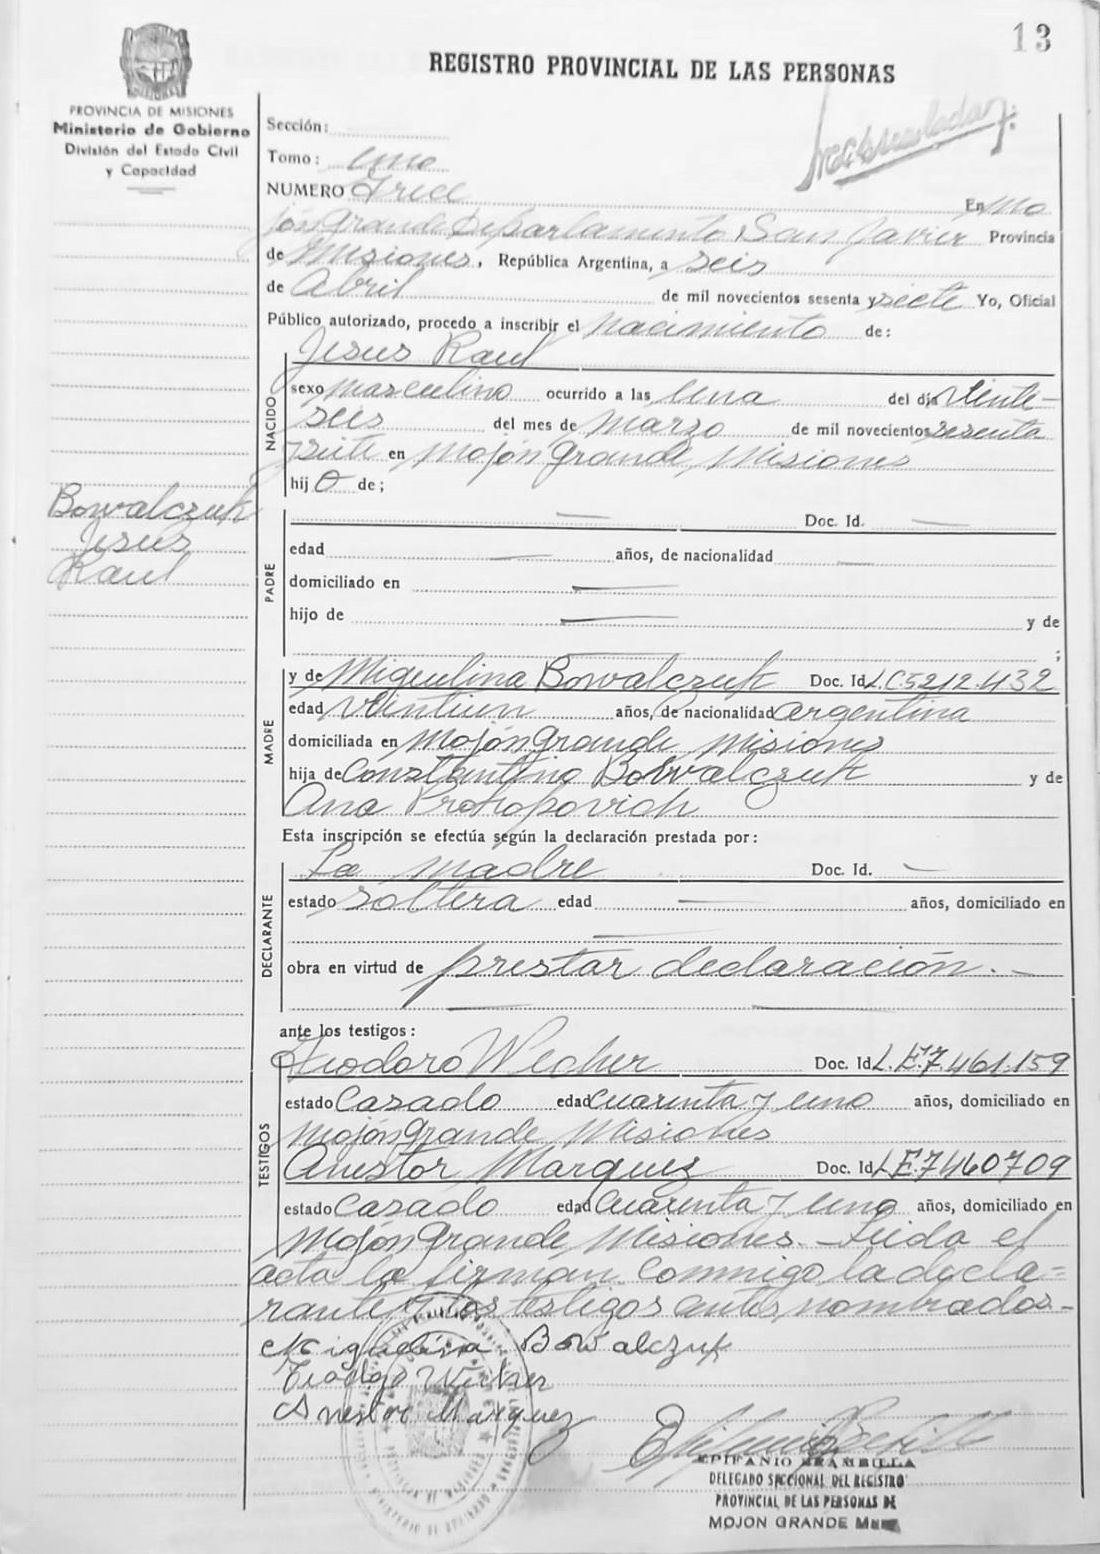 13
REGISTRO PROVINCIAL DE LAS PERSONAS
PROVINCIA DE MISIONES
Ministerio de Gobierno
División del Estado Civil
y Capacidad
Sección:
Tomo: uno
NUMERO Trece
En Mo
jón Grande Departamento San Javier Provincia
de Misiones, República Argentina, a seis
de Abril de mil novecientos sesenta y siete Yo, Oficial
Público autorizado, procedo a inscribir el nacimiento de:
Jesus Raul
NACIDO
sexo masculino ocurrido a las una del día veinte-
seis del mes de Marzo de mil novecientos sesenta
siete en Mojón Grande, Misiones
hijo de;
Bowalczuk
Jesus
Raul
PADRE
— Doc. Id. —
edad — años, de nacionalidad —
domiciliado en —
hijo de — y de
;
MADRE
y de Miguelina Bowalczuk Doc. Id L.C.5212.432
edad veintiun años, de nacionalidad argentina
domiciliada en Mojón Grande, Misiones
hija de Constantino Bowalczuk y de
Ana Prokopovich
Esta inscripción se efectúa según la declaración prestada por:
DECLARANTE
La madre Doc. Id. —
estado soltera edad — años, domiciliado en
—
obra en virtud de prestar declaración. —
ante los testigos:
TESTIGOS
Teodoro Wecher Doc. Id L.E.7.461.159
estado Casado edad cuarenta y uno años, domiciliado en
Mojón Grande Misiones
Anestor Marquez Doc. Id L.E.7460709
estado Casado edad cuarenta y uno años, domiciliado en
Mojón Grande, Misiones. - Leida el
acta la firman conmigo la decla=
rante y los testigos antes nombrados-
Miguelina Bowalczuk
Wecher
Anestor Marquez
EPIFANIO BRAMBILLA
DELEGADO SECCIONAL DEL REGISTRO
PROVINCIAL DE LAS PERSONAS DE
MOJON GRANDE